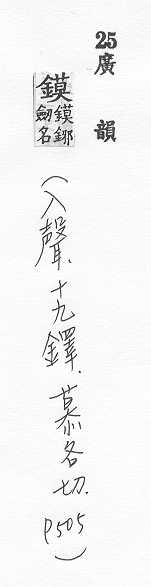 25廣韻
鏌鏌鋣劒名
(入聲.十九鐸.慕各切.P505)